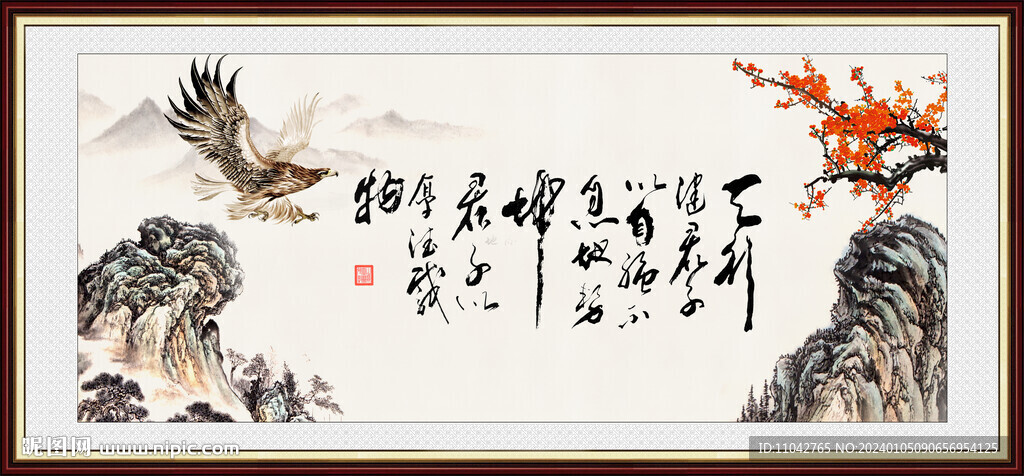 天行
健君子
以自强不
息地势
坤
君子以
厚德载
物
昵图网 www.nipic.com
ID:11042765 NO:20240105090656954125